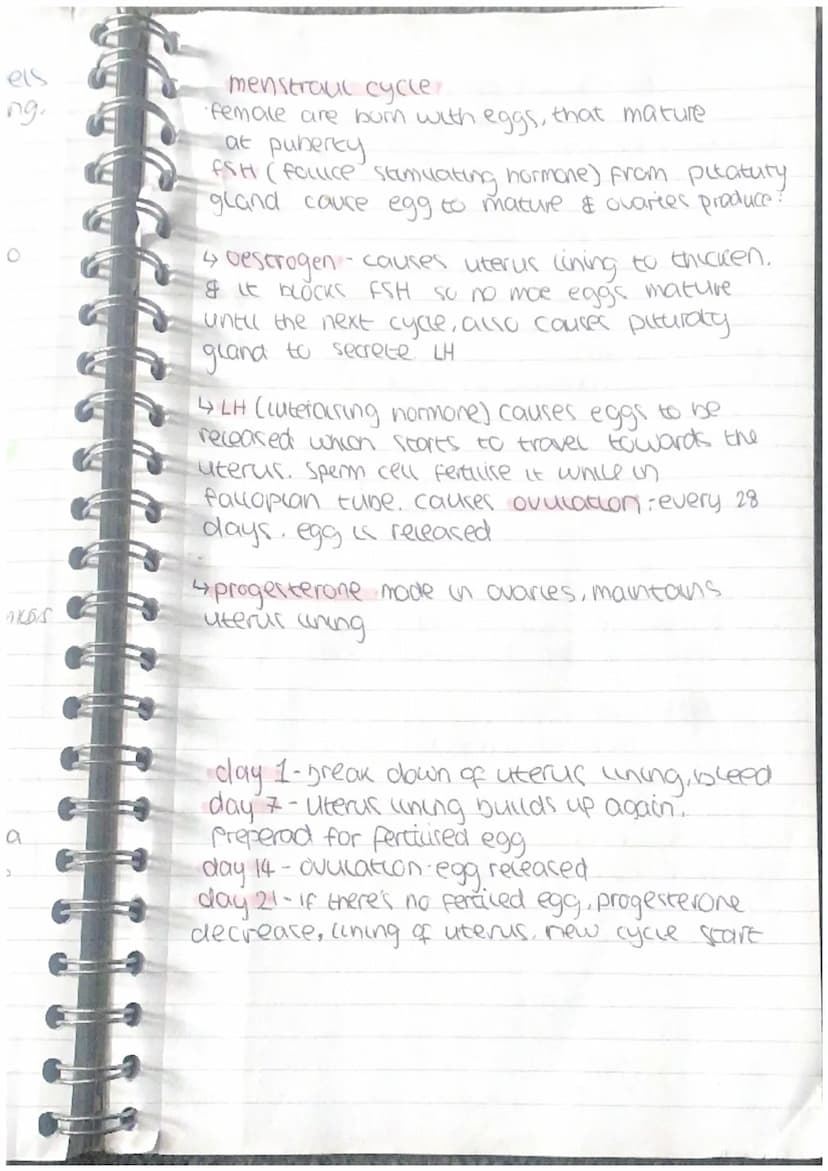 els
ng.
o
a
menstraul cycle
female are born with eggs, that mature
at puberty
FSH (follice stimulating hormone) from pitatury
gland cause egg to mature & ovaries produce:
↳ oestrogen - causes uterus lining to thicken.
& it blocks FSH so no moe eggs mature
until the next cycle, also causes pituraty
gland to secrete LH
↳ LH (luteiasing hormone) causes eggs to be
released which starts to travel towards the
uterus. sperm cell fertilise it while in
fallopian tube. causes ovulation: every 28
days. egg is released
↳ progesterone made in ovaries, maintains
uterus lining
day 1 - break down of uterus lining, bleed
day 7 - uterus lining builds up again.
preperad for fertilised egg
day 14 - ovulation - egg released
day 21 - if there's no fertiled egg, progesterone
decrease, lining of uterus. new cycle start